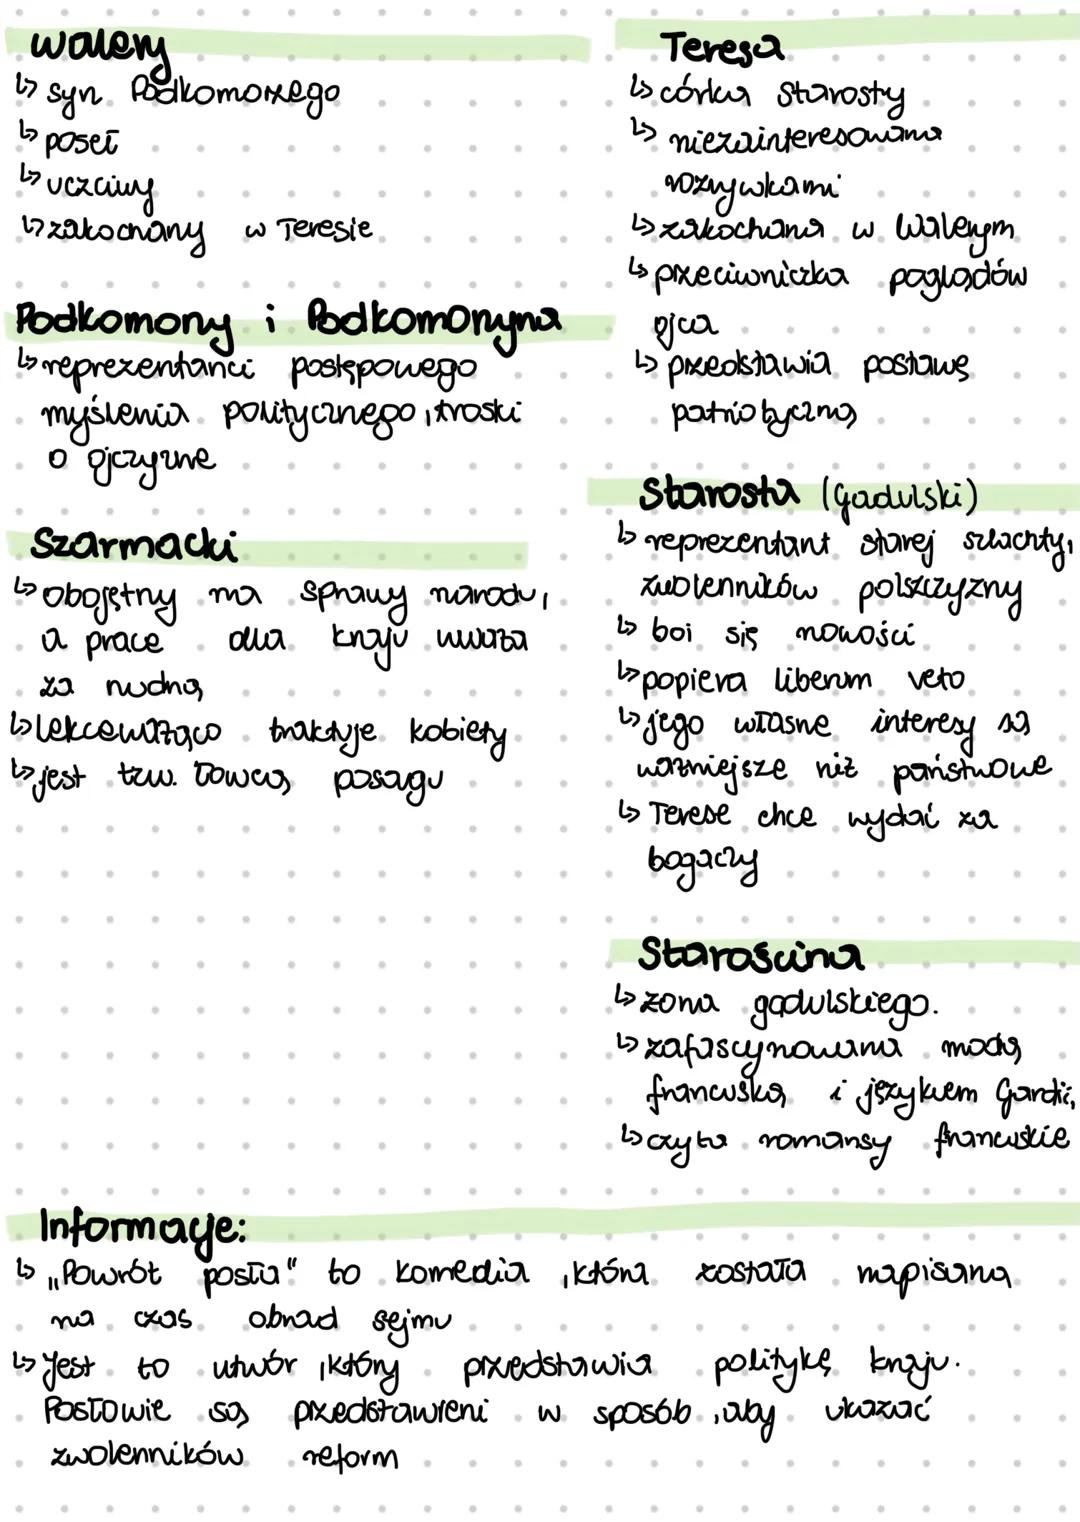 Walery
↳ syn Podkomorzego
↳ poseł
↳ uczciwy
↳ zakochany w Teresie
Podkomorzy i Podkomorzyna
↳ reprezentanci postępowego
myślenia politycznego, troski
o ojczyznę
Szarmacki
↳ obojętny na sprawy narodu,
a pracę dla kraju uważa
za nudną
↳ lekceważąco traktuje kobiety
↳ jest tzw. łowcą posagu
Teresa
↳ córka Starosty
↳ niezainteresowana
rozrywkami
↳ zakochana w Walerym
↳ przeciwniczka poglądów
ojca
↳ przedstawia postawę
patriotyczną
Starosta (Gadulski)
↳ reprezentant starej szlachty,
zwolenników polszczyzny
↳ boi się nowości
↳ popiera liberum veto
↳ jego własne interesy są
ważniejsze niż państwowe
↳ Terese chce wydać za
bogaczy
Starościna
↳ żona gadulskiego.
↳ zafascynowana modą
francuską i językiem Gardii,
↳ czyta romansy francuskie
Informacje:
↳ „Powrót posła" to komedia, która została napisana
na czas obrad sejmu
↳ Jest to utwór, który przedstawia politykę kraju.
Posłowie są przedstawieni w sposób, aby ukazać
zwolenników reform